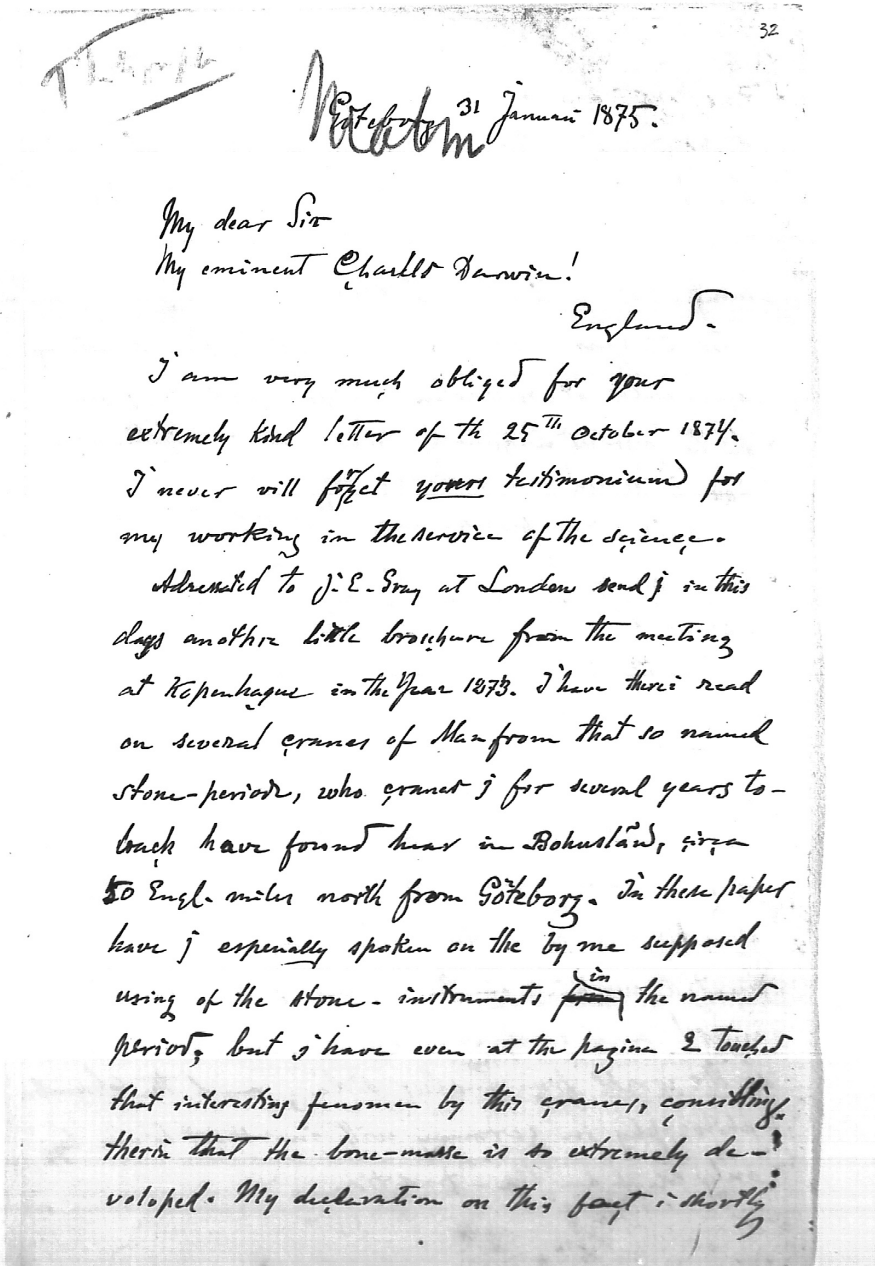 32
Malm
Göteborg 31 Januari 1875.
My dear Sir
My eminent Charles Darwin!
England.
I am very much obliged for your
extremely kind letter of th 25th October 1874.
I never vill forget yours testimonium for
my working in the service of the science.
Adressated to J. E. Gray at London send j in this
days another little broschure from the meeting
at Kopenhague in the Year 1873. I have there read
on several cranes of Man from that so named
stone-periode, who cranes j for several years to-
back have found hear in Bohuslän, circa
50 Engl. miles north from Göteborg. In these paper
have j especially spoken on the by me supposed
using of the stone-instruments in the named
period, but j have even at the pagina 2 touched
that interesting fenomen by this cranes, consitting
therin that the bone-masse is so extremely de-
veloped. My declaration on this fact is shortly